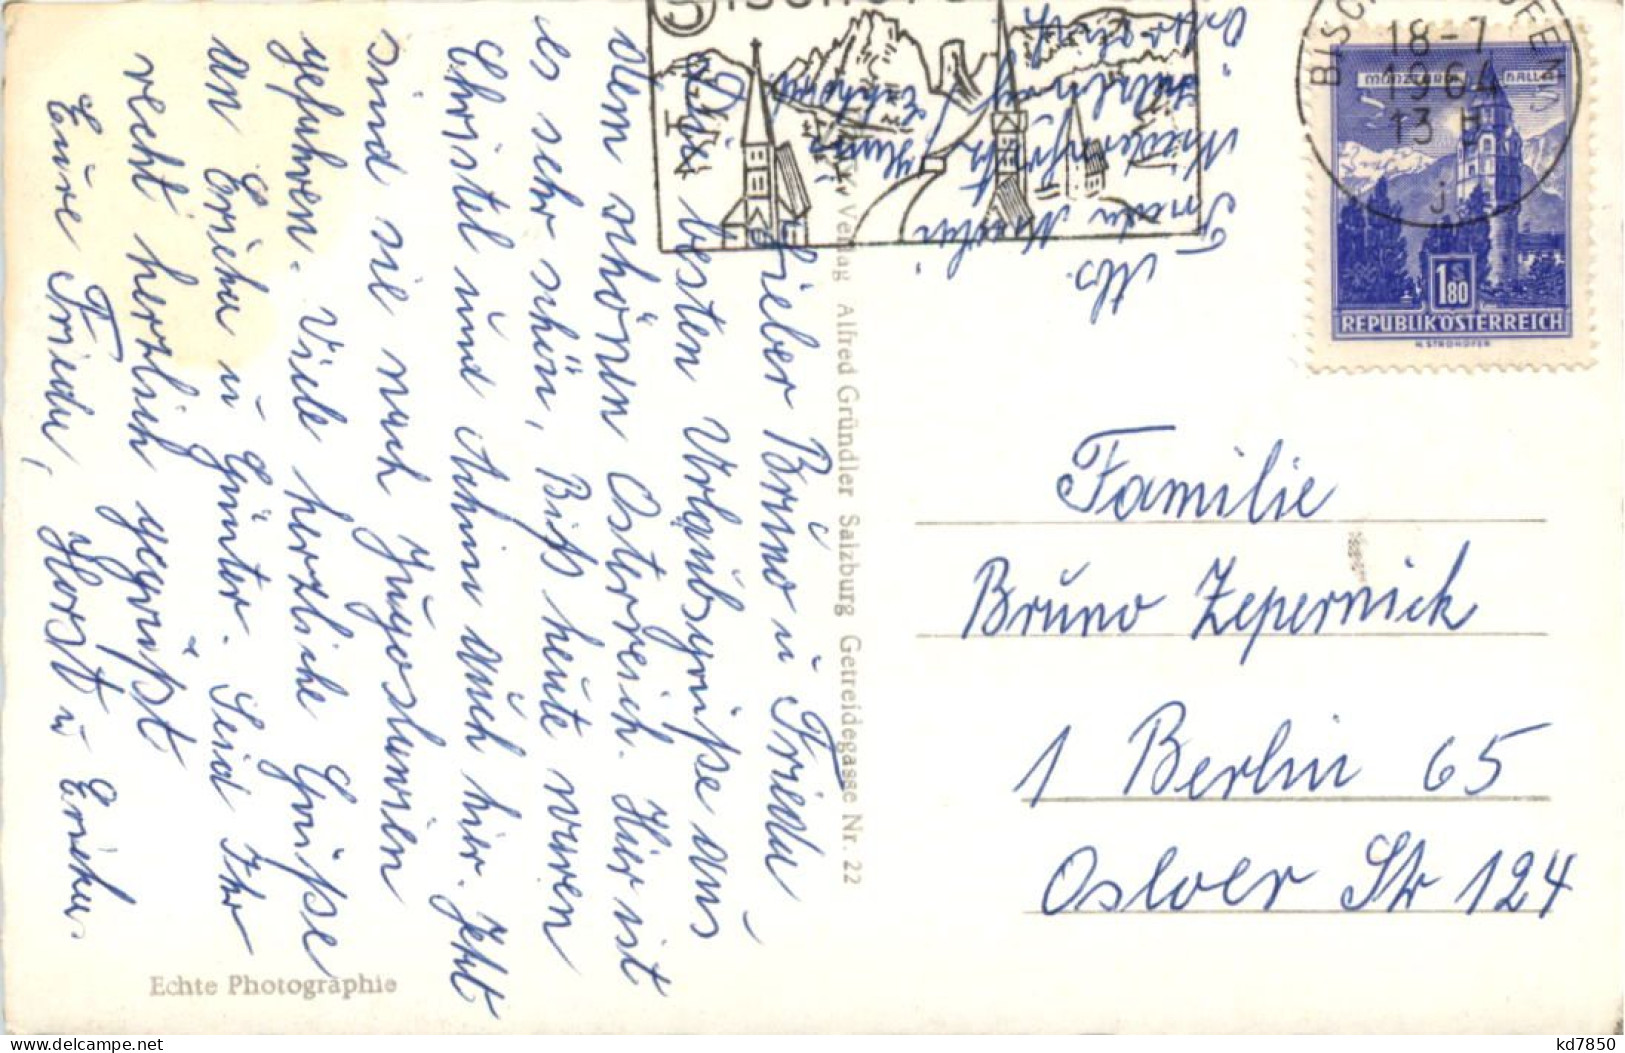 Lieber Bruno u Frieda
Die besten Urlaubsgrüße aus
dem schönen Österreich. Hier ist
es sehr schön, Biß heute waren
Christel und Achim auch hier. Jetzt
sind sie nach Jugoslawien
gefahren. Viele herzliche Grüße
an Erika u Günter. Seid Ihr
recht herzlich gegrüßt
Eure Frieda, Horst u Erika.
Abs.
Frieda
Haus
18-7
1964
13 H
j
MÜNZTURM HALL
1 S 80
REPUBLIK ÖSTERREICH
H. STROHOFER
Verlag Alfred Gründler Salzburg Getreidegasse Nr. 22
Familie
Bruno Zepernick
1 Berlin 65
Osloer Str 124
Echte Photographie
kd7850